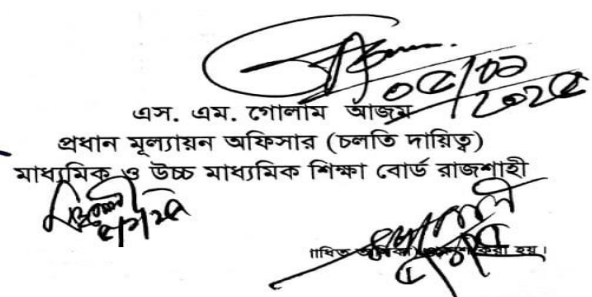 ০৫/০১
২০২৫
এস. এম. গোলাম আজম
প্রধান মূল্যায়ন অফিসার (চলতি দায়িত্ব)
মাধ্যমিক ও উচ্চ মাধ্যমিক শিক্ষা বোর্ড রাজশাহী
করা হয়।